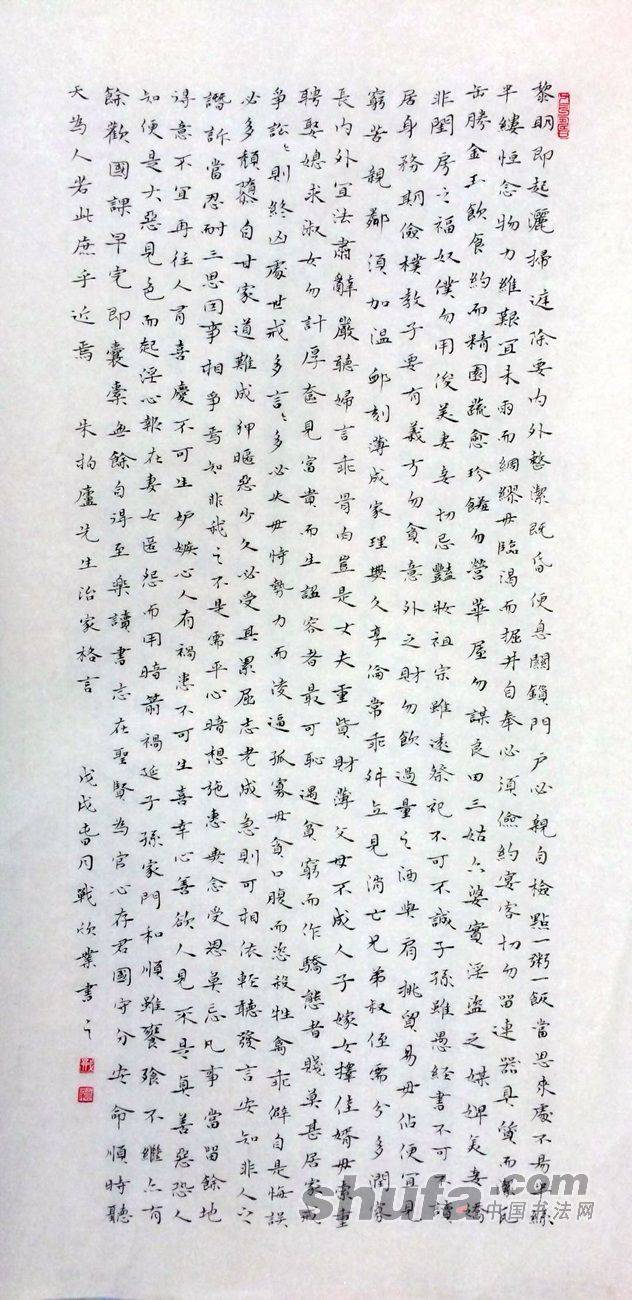 黎明即起灑掃庭除要内外整潔既昏便息關鎖門户必親自檢點一粥一飯當思來處不易半絲
半縷恒念物力維艱宜未雨而綢繆毋臨渴而掘井自奉必須儉約宴客切勿留連器具質而潔瓦
缶勝金玉飲食約而精園蔬愈珍饈勿營華屋勿謀良田三姑六婆實淫盜之媒婢美妾嬌
非閨房之福奴僕勿用俊美妻妾切忌豔妝祖宗雖遠祭祀不可不誠子孫雖愚經書不可不讀
居身務期儉樸教子要有義方勿貪意外之財勿飲過量之酒與肩挑貿易毋佔便宜見
窮苦親鄰須加溫卹刻薄成家理無久享倫常乖舛立見消亡兄弟叔侄需分多潤寡
長内外宜法肅辭嚴聽婦言乖骨肉豈是丈夫重貲財薄父母不成人子嫁女擇佳婿毋索重
聘娶媳求淑女勿計厚奩見富貴而生諂容者最可恥遇貧窮而作驕態者賤莫甚居家戒
爭訟訟則終凶處世戒多言言多必失毋恃勢力而凌逼孤寡毋貪口腹而恣殺牲禽乖僻自是悔誤
必多頹隳自甘家道難成狎暱惡少久必受其累屈志老成急則可相依輕聽發言安知非人之
譖訴當忍耐三思因事相爭焉知非我之不是需平心暗想施惠無念受恩莫忘凡事當留餘地
得意不宜再往人有喜慶不可生妒嫉心人有禍患不可生喜幸心善欲人見不是真善惡恐人
知便是大惡見色而起淫心報在妻女匿怨而用暗箭禍延子孫家門和順雖饔飧不繼亦有
餘歡國課早完即囊橐無餘自得至樂讀書志在聖賢為官心存君國守分安命順時聽
天為人若此庶乎近焉 朱柏廬先生治家格言 戊戌春月戰欣業書之
shufa.com
中国书法网